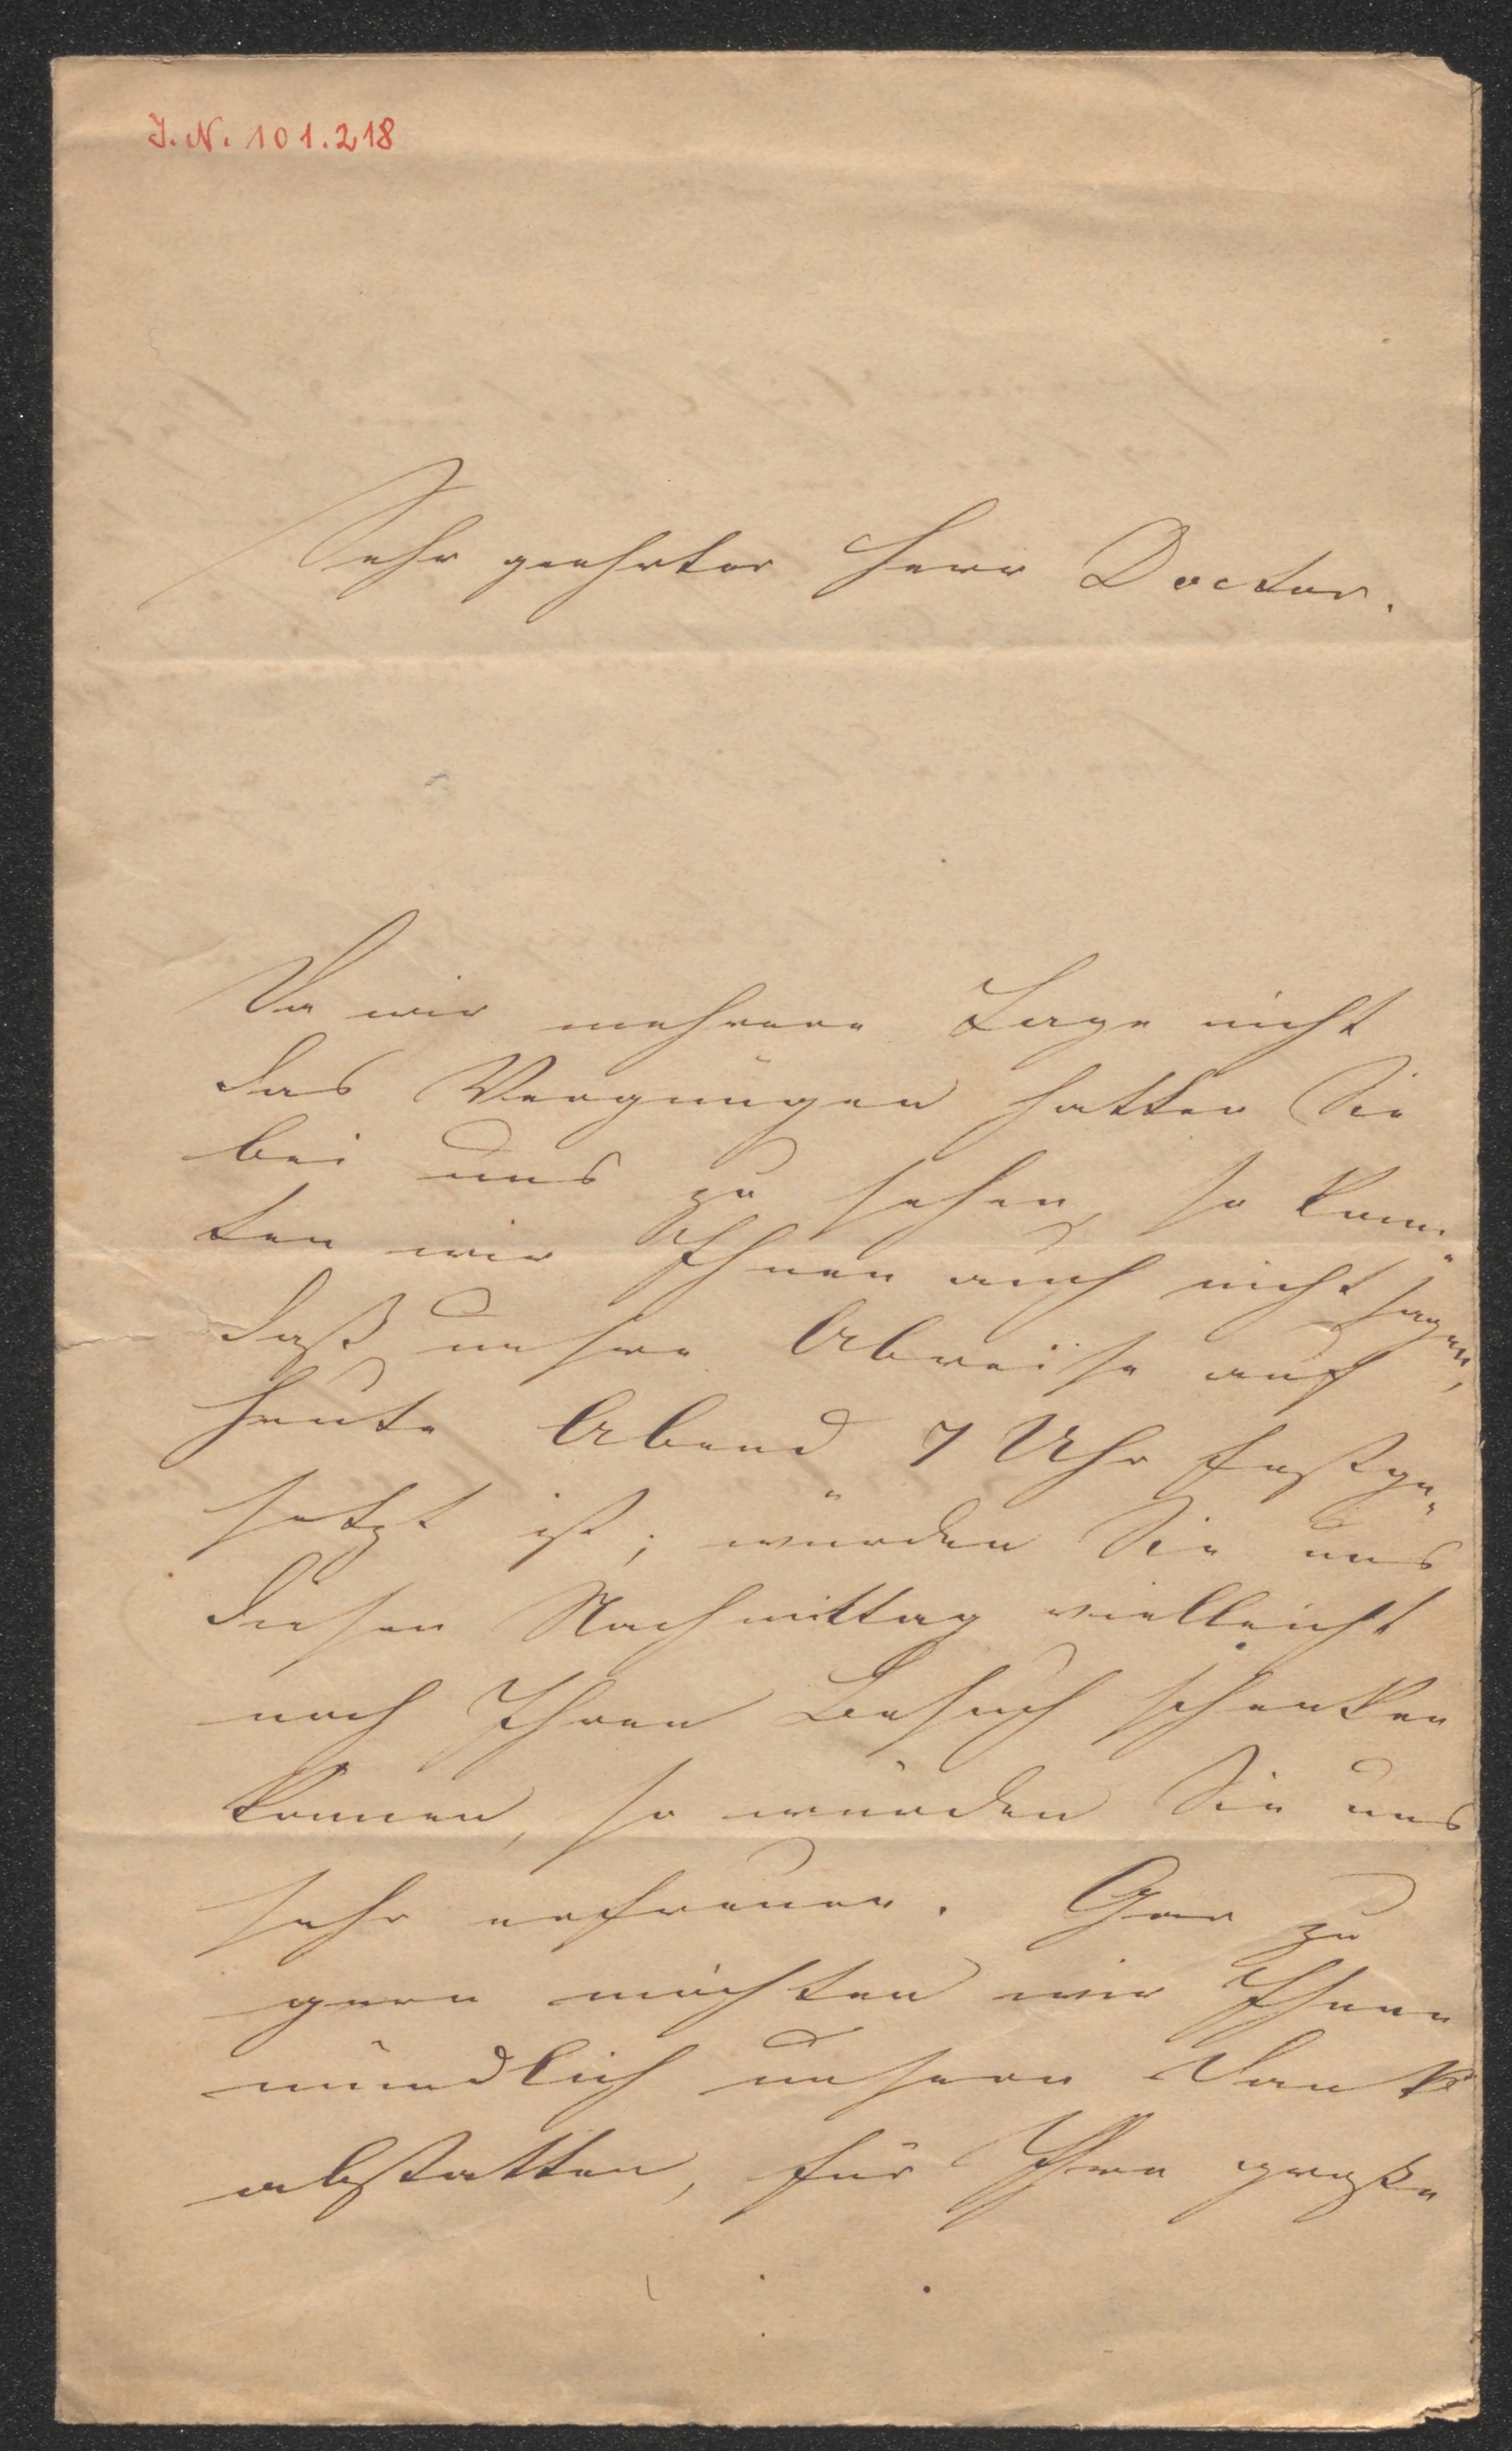 J. N. 101.218
Sehr geehrter Herr Doctor.
Da wir mehrere Tage nicht
das Vergnügen hatten Sie
bei uns zu sehen, so konn-
ten wir Ihnen auch nicht sagen,
daß unsere Abreise auf
heute Abend 7 Uhr festge-
setzt ist; würden Sie uns
diesen Nachmittag vielleicht
noch Ihren Besuch schenken
können, so würden Sie uns
sehr erfreuen. Gar zu
gern möchten wir Ihnen
mündlich unseren Dank
abstatten, für Ihre große